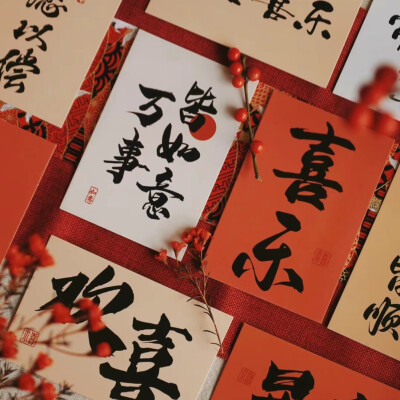 以偿
喜乐
万事
皆如意
喜乐
欢喜
顺